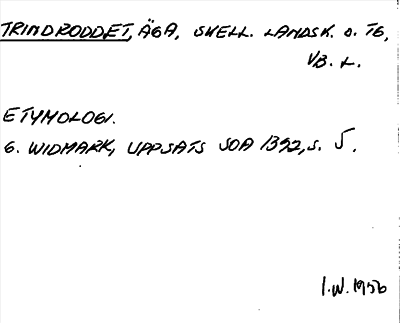 TRINDRODDET, ÄGA, SKELL. LANDSK. O. TG,
VB. L.
ETYMOLOGI.
G. WIDMARK, UPPSATS SOA 1392, S. 5.
I.W. 1956